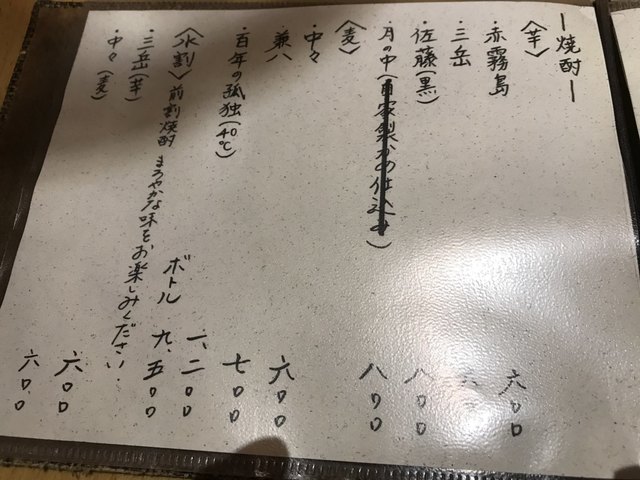 ー焼酎ー
〈芋〉
・赤霧島 六〇〇
・三岳
・佐藤(黒) 八〇〇
・月の中(自家製かめ仕込み) 八〇〇
〈麦〉
・中々 六〇〇
・兼八 七〇〇
・百年の孤独(40℃) 一、二〇〇
ボトル 九、五〇〇
〈水割〉前割焼酎 まろやかな味をお楽しみください.
・三岳(芋) 六〇〇
・中々(麦) 六〇〇